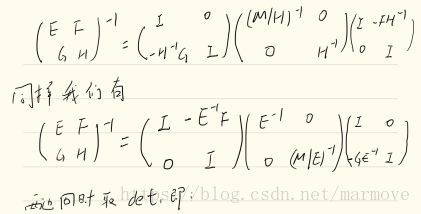 (E F; G H)⁻¹ = (I 0; -H⁻¹G I) ((M/H)⁻¹ 0; 0 H⁻¹) (I -FH⁻¹; 0 I)
同样我们有
(E F; G H)⁻¹ = (I -E⁻¹F; 0 I) (E⁻¹ 0; 0 (M/E)⁻¹) (I 0; -GE⁻¹ I)
两边同时取 det, 即:
https://blog.csdn.net/marmove